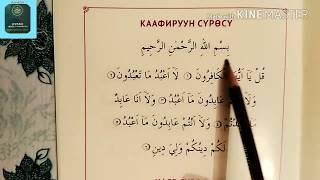 КААФИРУУН СҮРӨСҮ
بِسْمِ اللهِ الرَّحْمٰنِ الرَّحِيمِ
قُلْ يَا أَيُّهَا الْكَافِرُونَ ① لَا أَعْبُدُ مَا تَعْبُدُونَ ②
وَلَا أَنْتُمْ عَابِدُونَ مَا أَعْبُدُ ③ وَلَا أَنَا عَابِدٌ
مَا عَبَدْتُمْ ④ وَلَا أَنْتُمْ عَابِدُونَ مَا أَعْبُدُ ⑤
لَكُمْ دِينُكُمْ وَلِيَ دِينِ ⑥
KINEMASTER